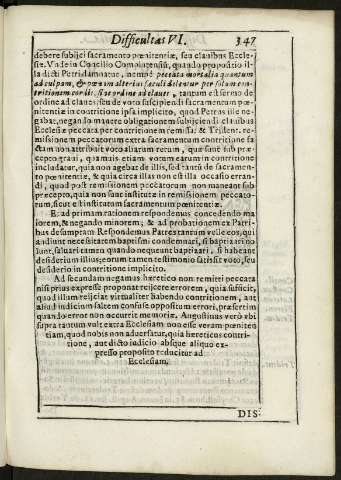 Difficultas VI. 347
debere subijci sacramento pœnitentiæ, seu clauibus Eccle-
siæ. Vnde in Concilio Complutensi, quando propositio il-
la dicti Petri damnatur, nempè peccata mortalia quantum
ad culpam, & pœnam alterius sæculi delentur per solam con-
tritionem cordis, sine ordine ad claues, tantum est sermo de
ordine ad claues, seu de voto suscipiendi sacramentum pœ-
nitentiæ in contritione ipsa implicito, quod Petrus ille ne-
gabat, negando manere obligationem subijciendi clauibus
Ecclesiæ peccata per contritionem remissa: & Trident. re-
missionem peccatorum extra sacramentum contritione fa-
ctam non attribuit voto aliarum rerum, quæ sunt sub præ-
cepto graui, quamuis etiam votum earum in contritione
includatur, quia non agebat de illis, sed tantum de sacramen-
to pœnitentiæ, & quia circa illas non est illa occasio erran-
di, quod post remissionem peccatorum non maneant sub
præcepto, quia non sunt institutæ in remissionem peccato-
rum, sicut est institutum sacramentum pœnitentiæ.
Et ad primam rationem respondemus concedendo ma
iorem, & negando minorem; & ad probationem ex Patri
bus desumptam Respondemus Patres tantum velle eos, qui
audiunt necessitatem baptismi condemnari, si baptizari no
lunt, saluari tamen quando nequeunt baptizari, si habeant
desiderium illius; eorum tamen testimonio satisfit voto, seu
desiderio in contritione implicito.
Ad secundam negamus hæretico non remitti peccata
nisi prius expressè proponat reijcere errorem, quia sufficit,
quod illam reijciat virtualiter habendo contritionem, aut
aliud iudicium saltem confusè oppositum errori, præsertim
quando error non occurrit memoriæ. Augustinus verò vbi
supra tantum vult extra Ecclesiam non esse veram pœniten
tiam, quod nobis non aduersatur, quia hæreticus contri-
tione, aut dicto iudicio absque aliquo ex-
presso proposito reducitur ad
Ecclesiam.
DIS-